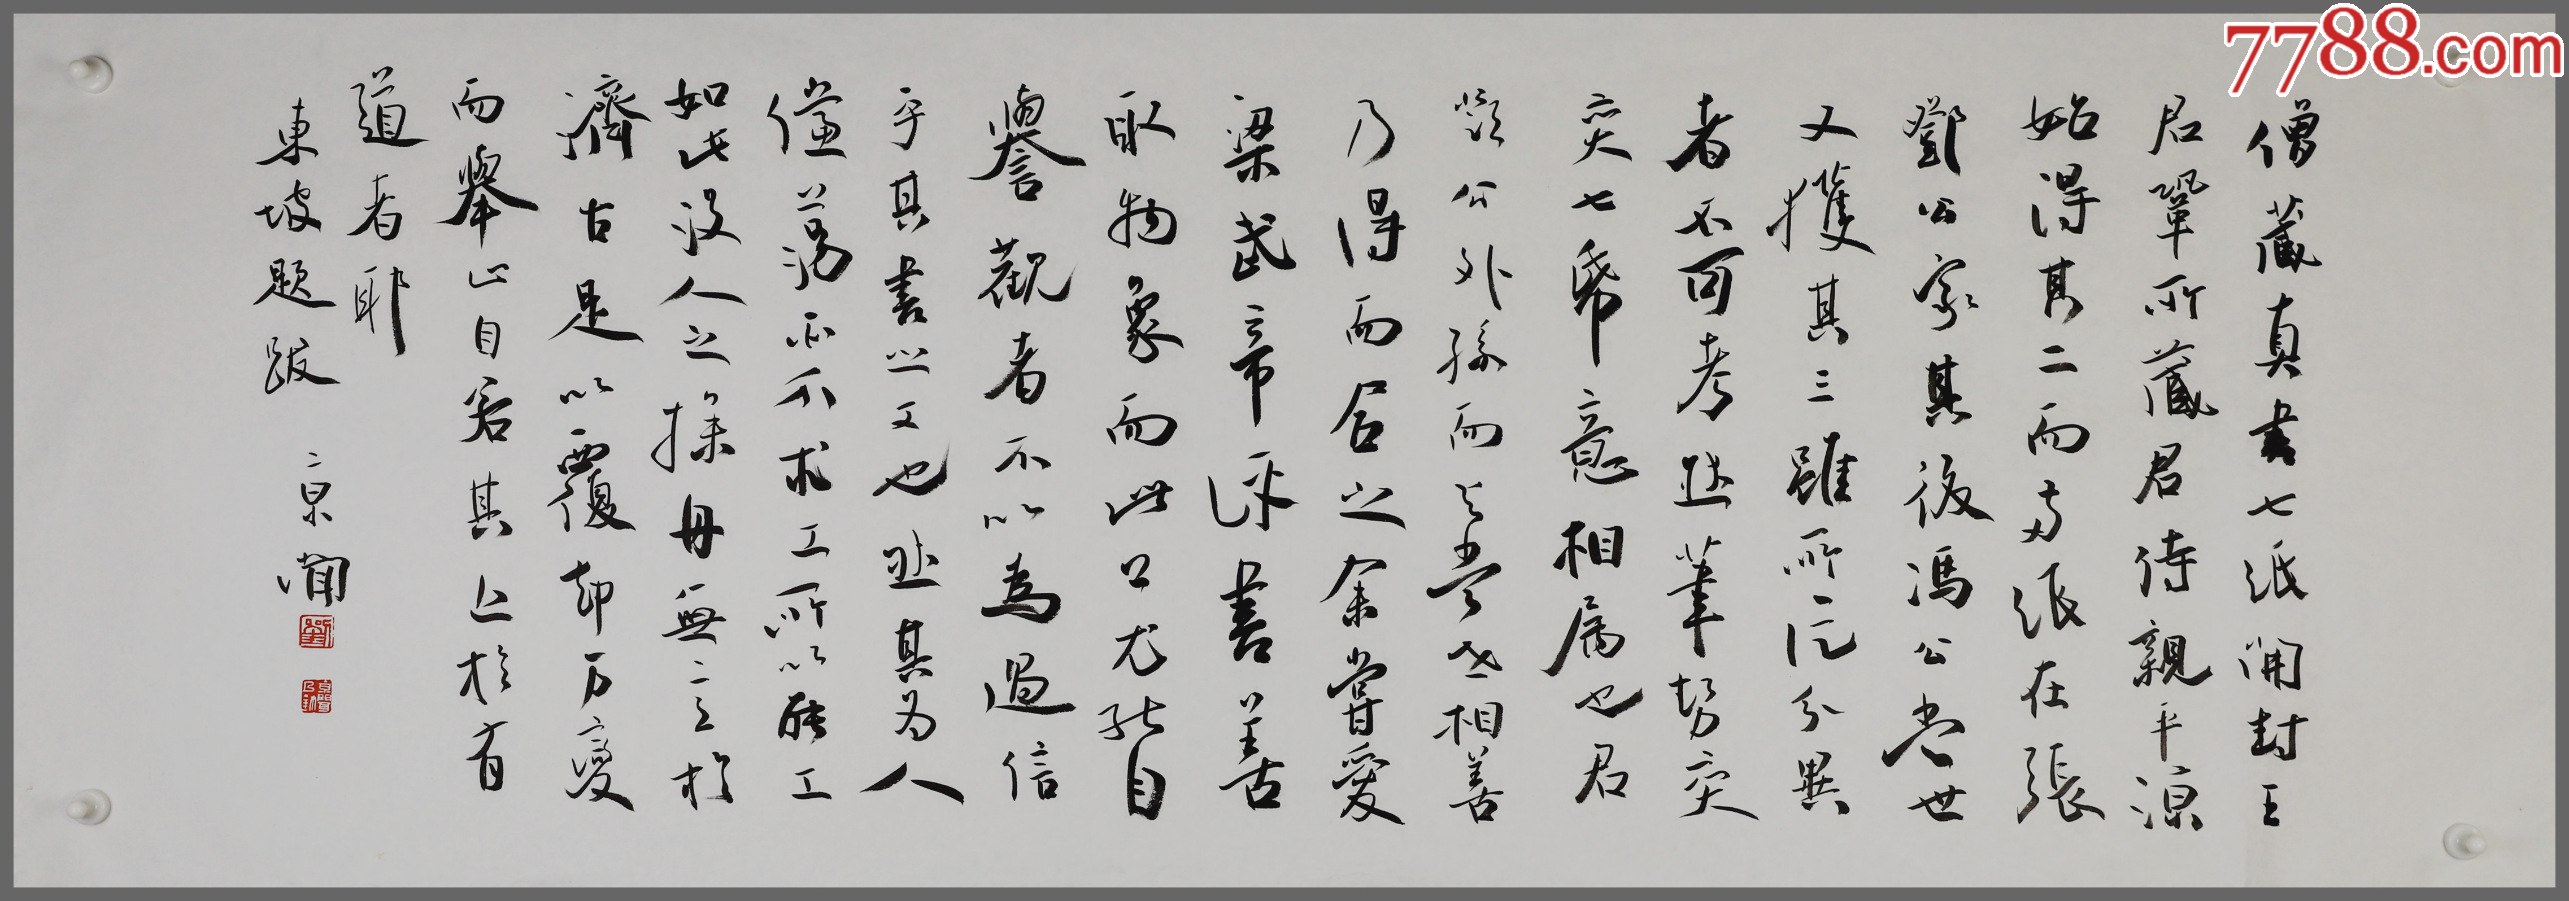 7788.com
僧藏真書七紙開封王
君鞏所藏君侍親平涼
始得其二而兩紙在張
鄧公家其後馮公當世
又獲其三雖所從分異
者不可考然筆勢奕
奕七帋意相屬也君
鄧公外孫而与當世相善
乃得而合之余嘗愛
梁武帝評書善
取物象而此公尤能自
譽觀者不以為過信
乎其書之工也然其為人
儻蕩本不求工所以能工
如此没人之操舟無意於
濟否是以覆却万變
而舉止自若其近於有
道者耶
東坡題跋 京聞